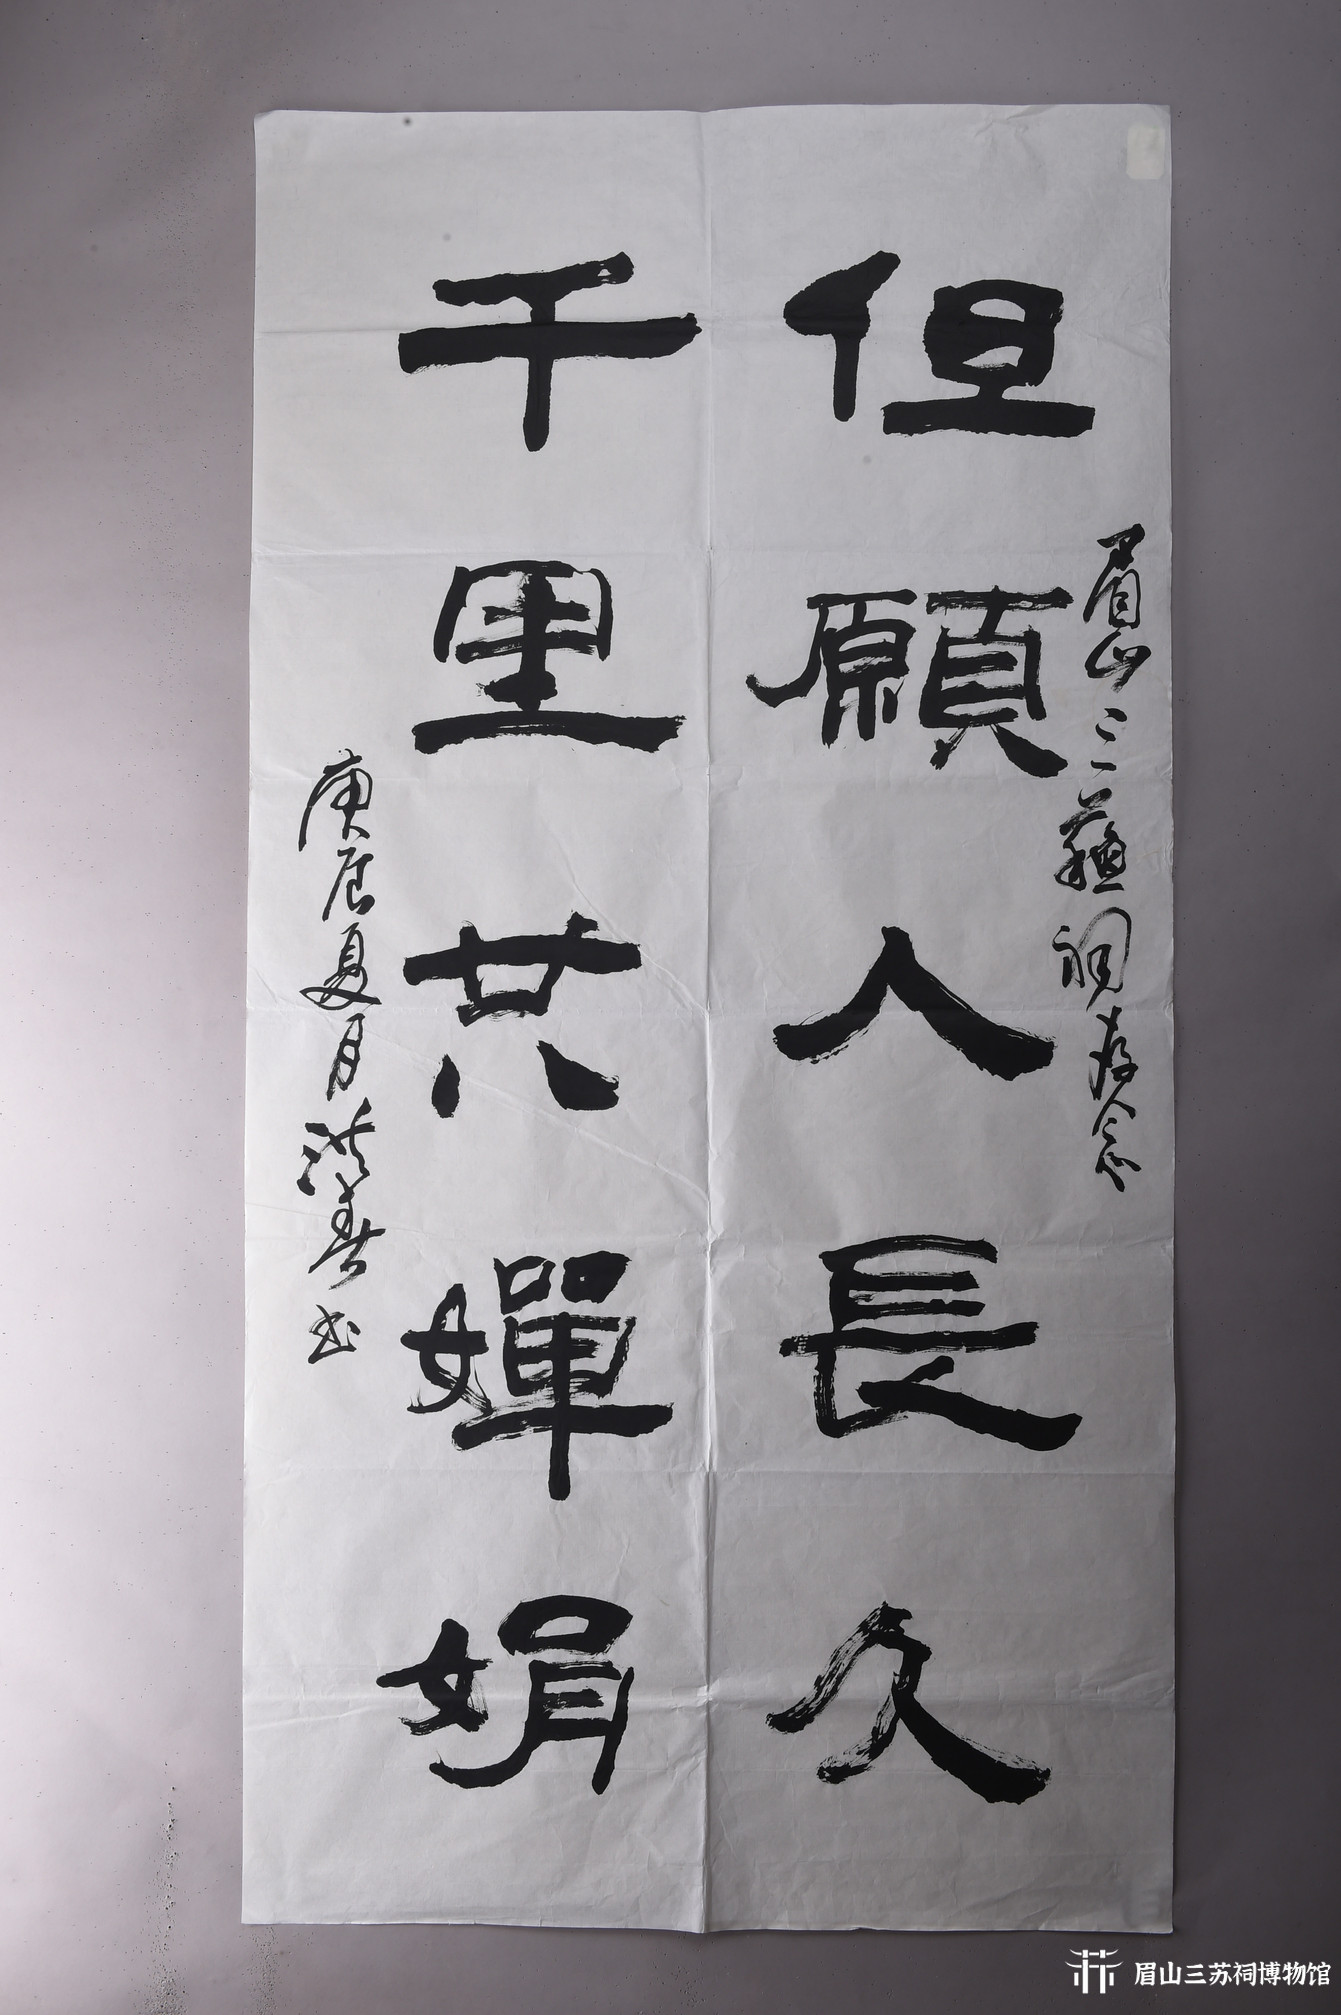 眉山三蘇祠存念
但願人長久
千里共嬋娟
庚辰夏月洪春书
眉山三苏祠博物馆